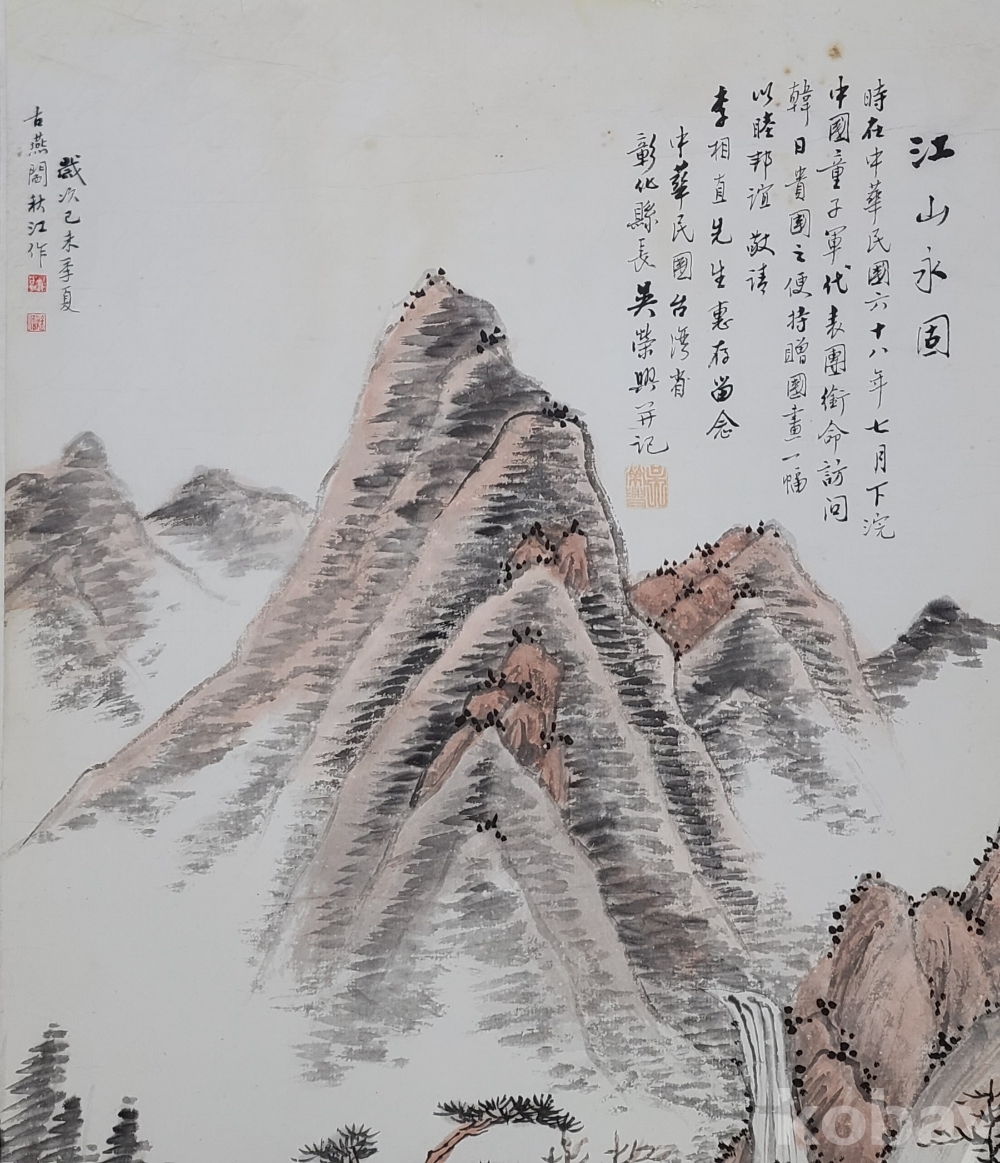 江山永固
時在中華民國六十八年七月下浣
中國童子軍代表團銜命訪问
韓日貴國之便持贈國畫一幅
以睦邦誼敬请
李相直先生惠存留念
中華民國台湾省
彰化縣長吳榮興并记
歲次己未季夏
古燕閻秋江作
kobay